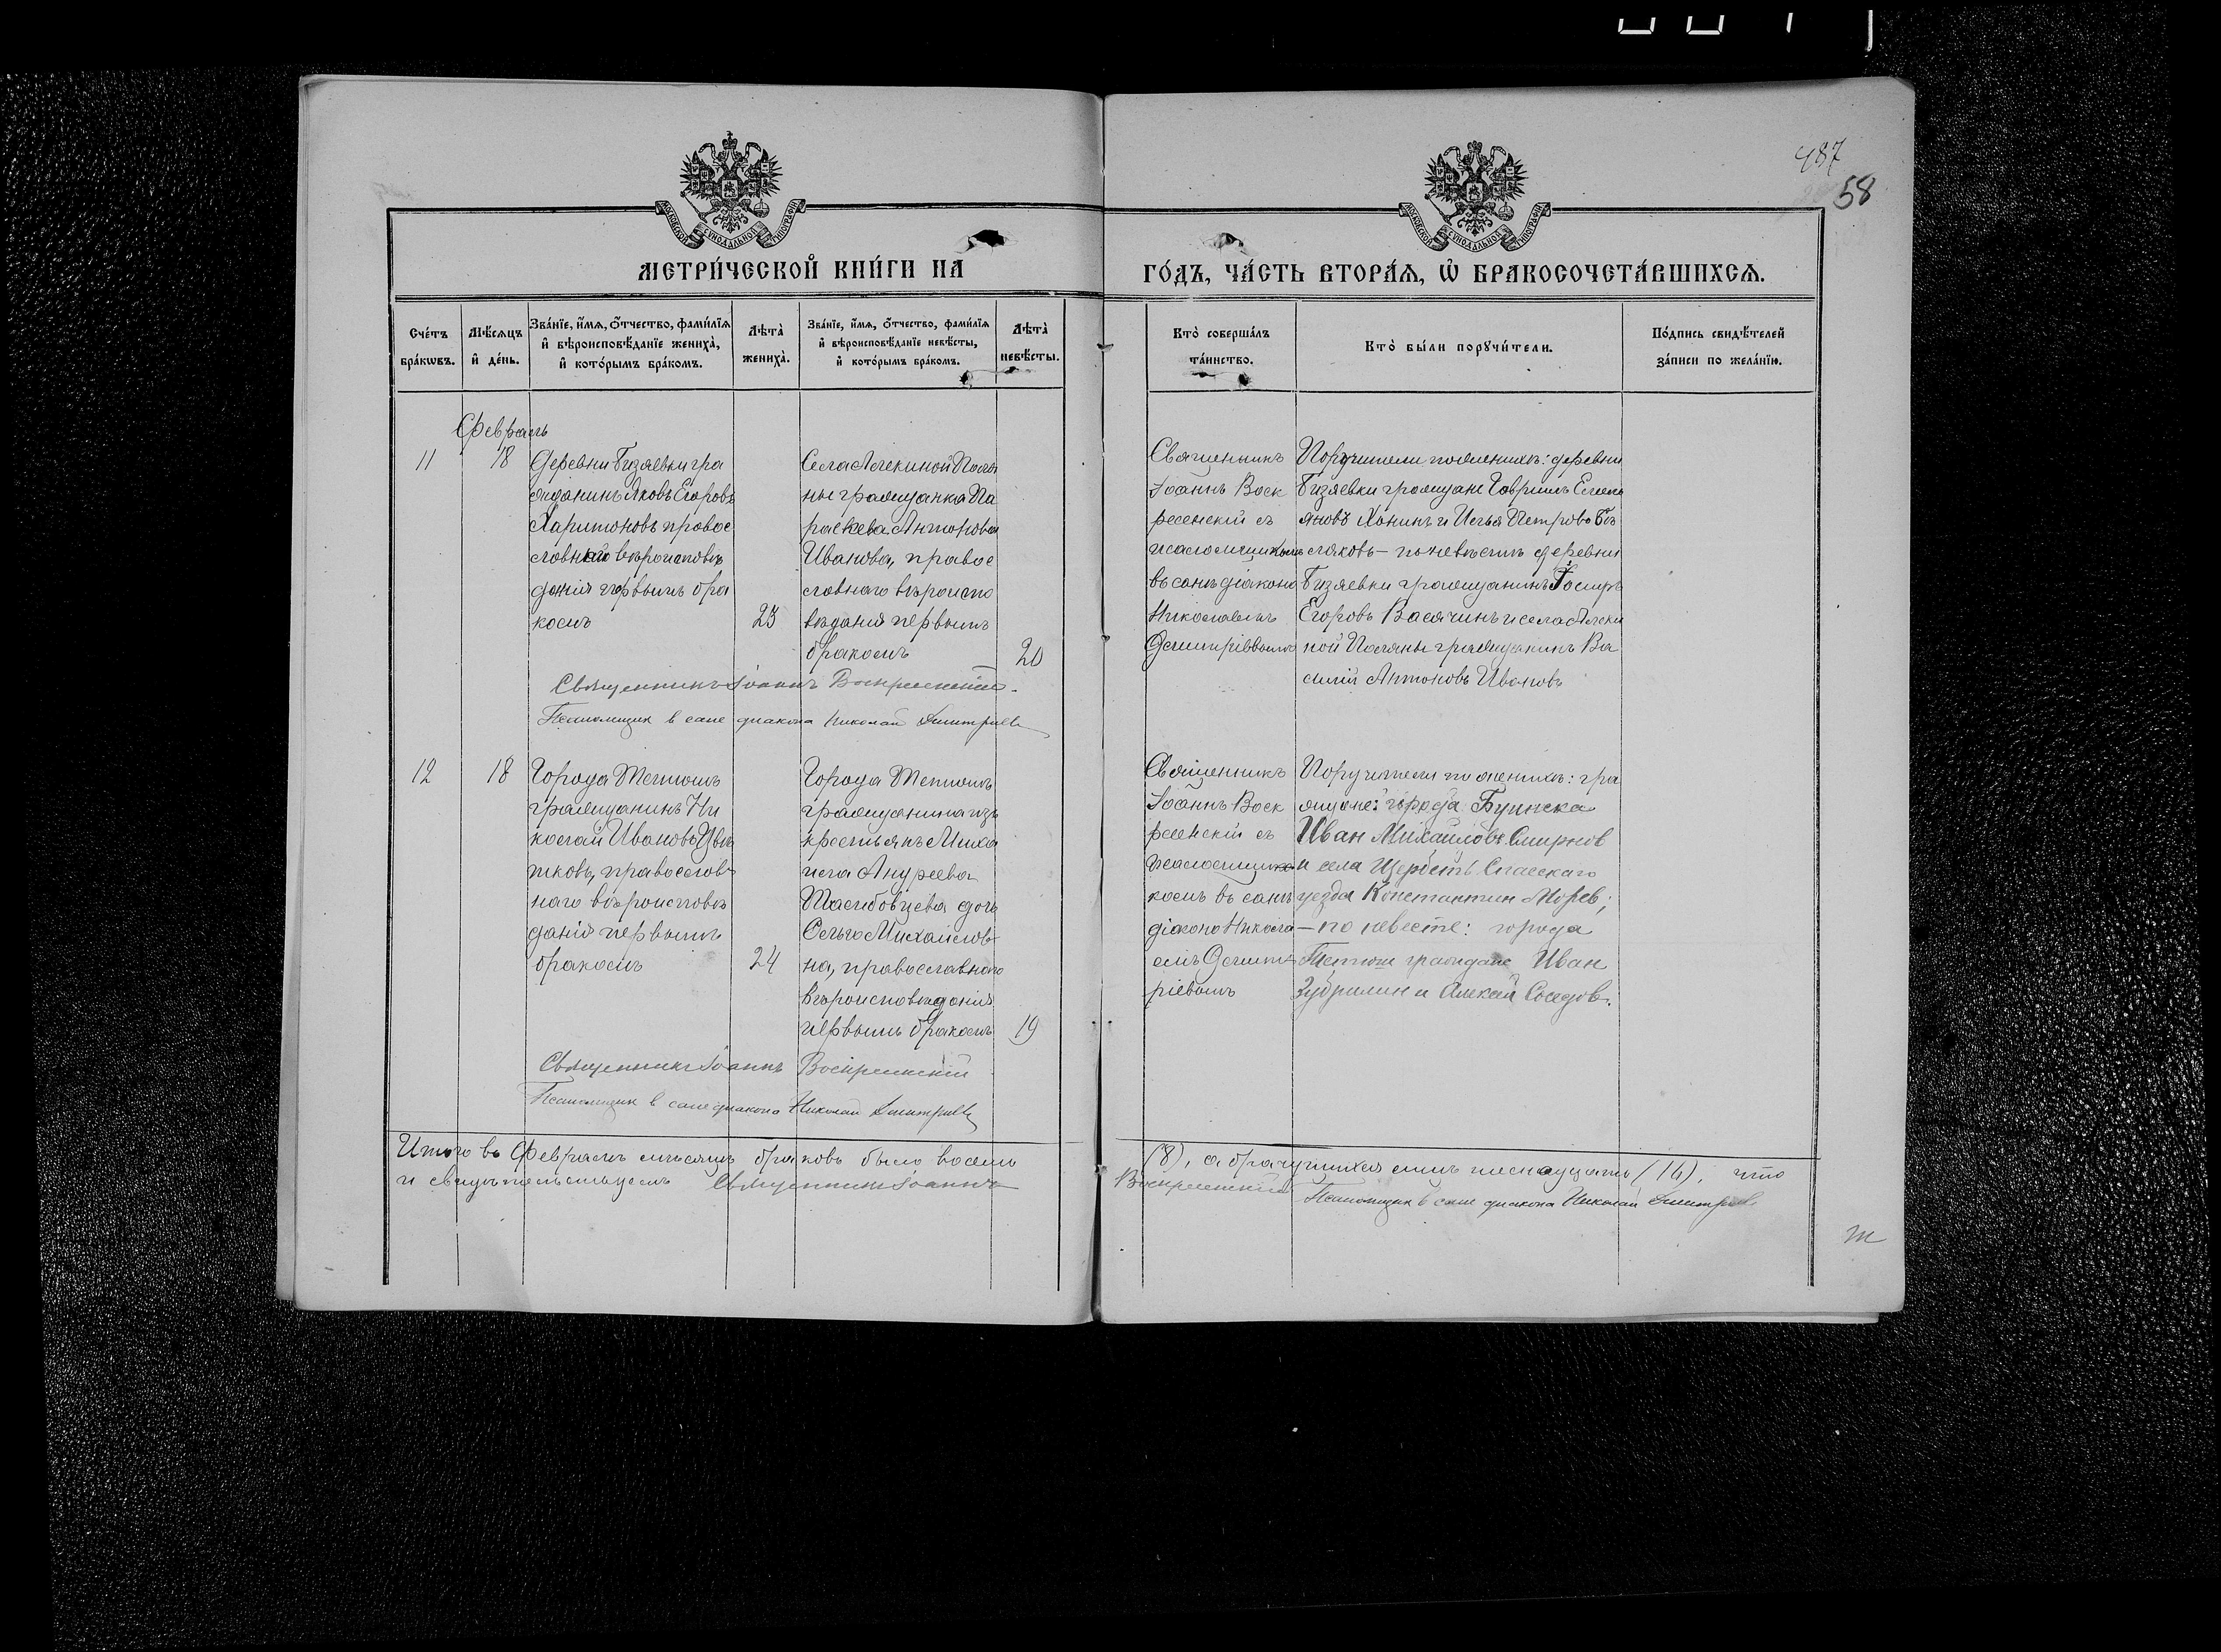 487
58
МОСКОВСКОЙ СѴНОДАЛЬНОЙ ТИПОГРАФІИ
МОСКОВСКОЙ СѴНОДАЛЬНОЙ ТИПОГРАФІИ
МЕТРИ́ЧЕСКОЙ КНИ́ГИ НА
ГО́ДЪ, ЧА́СТЬ ВТОРА́Я, Ѡ БРАКОСОЧЕТА́ВШИХСЯ.
Сче́тъ бра́кѡвъ.
Мѣ́сяцъ и де́нь.
Зва́нїе, и́мя, о́тчество, фами́лїя и вѣроисповѣ́данїе жениха̀, и кото́рымъ бра́комъ.
Лѣта̀ жениха̀.
Зва́нїе, и́мя, о́тчество, фами́лїя и вѣроисповѣ́данїе невѣ́сты, и кото́рымъ бра́комъ.
Лѣта̀ невѣ́сты.
Кто̀ соверша́лъ та́инство.
Кто̀ бы́ли порꙋчи́тели.
По́дпись свидѣ́телей за́писи по жела́нїю.
Февраль
11
18
Деревни Бизяевки гра
жданинъ Яковъ Егоровъ
Харитоновъ правос
славнаго вѣроисповѣ
данія первымъ бра
комъ
23
Села Алекиной Поля
ны гражданка Па
раскева Антонова
Иванова, правос
славнаго вѣроиспо
вѣданія первымъ
бракомъ
20
Священникъ
Іоаннъ Воск
ресенскій съ
псаломщикомъ
въ санѣ діакона
Николаемъ
Дмитріевымъ
Поручители по женихѣ: деревни
Бизяевки граждане Гавриилъ Емель
яновъ Хонинъ и Илья Петровъ
по невѣстѣ деревни
Бизяевки гражданинъ
Егоровъ Васячинъ и села Алеки
ной Поляны гражданинъ Ва
силій Антоновъ Ивановъ
Священникъ Іоаннъ Воскресенскій.
Псаломщик в сане диакона Николай Дмитриев
12
18
Города Тетюшъ
гражданинъ Ни
колай Ивановъ Цвѣ
тковъ, православ
наго вѣроисповѣ
данія первымъ
бракомъ
24
Города Тетюшъ
гражданина изъ
крестьянъ Миха
ила Андреева
дочь
Ольга Михайлов
на, православнаго
вѣроисповѣданія
первымъ бракомъ
19
Священникъ
Іоаннъ Воск
ресенскій съ
псаломщи
комъ въ санѣ
діакона Никола
емъ Дмит
ріевымъ
Поручители по женихѣ: гра
ждане: города Буинска
Иван Михайловъ Смирнов
и села Щербеть Спасскаго
уезда Константин Морев;
— по невесте: города
Тетюш граждане Иван
Зубрилин и Алексей Соседов.
Священникъ Іоаннъ Воскресенскій
Псаломщик в сане диакона Николай Дмитриев
Итого въ Февралѣ мѣсяцѣ браковъ было восемь (8), а брачущихся лицъ шеснадцать (16), что
и свидѣтельствуемъ Священникъ Іоаннъ Воскресенскій Псаломщик в сане диакона Николай Дмитриев